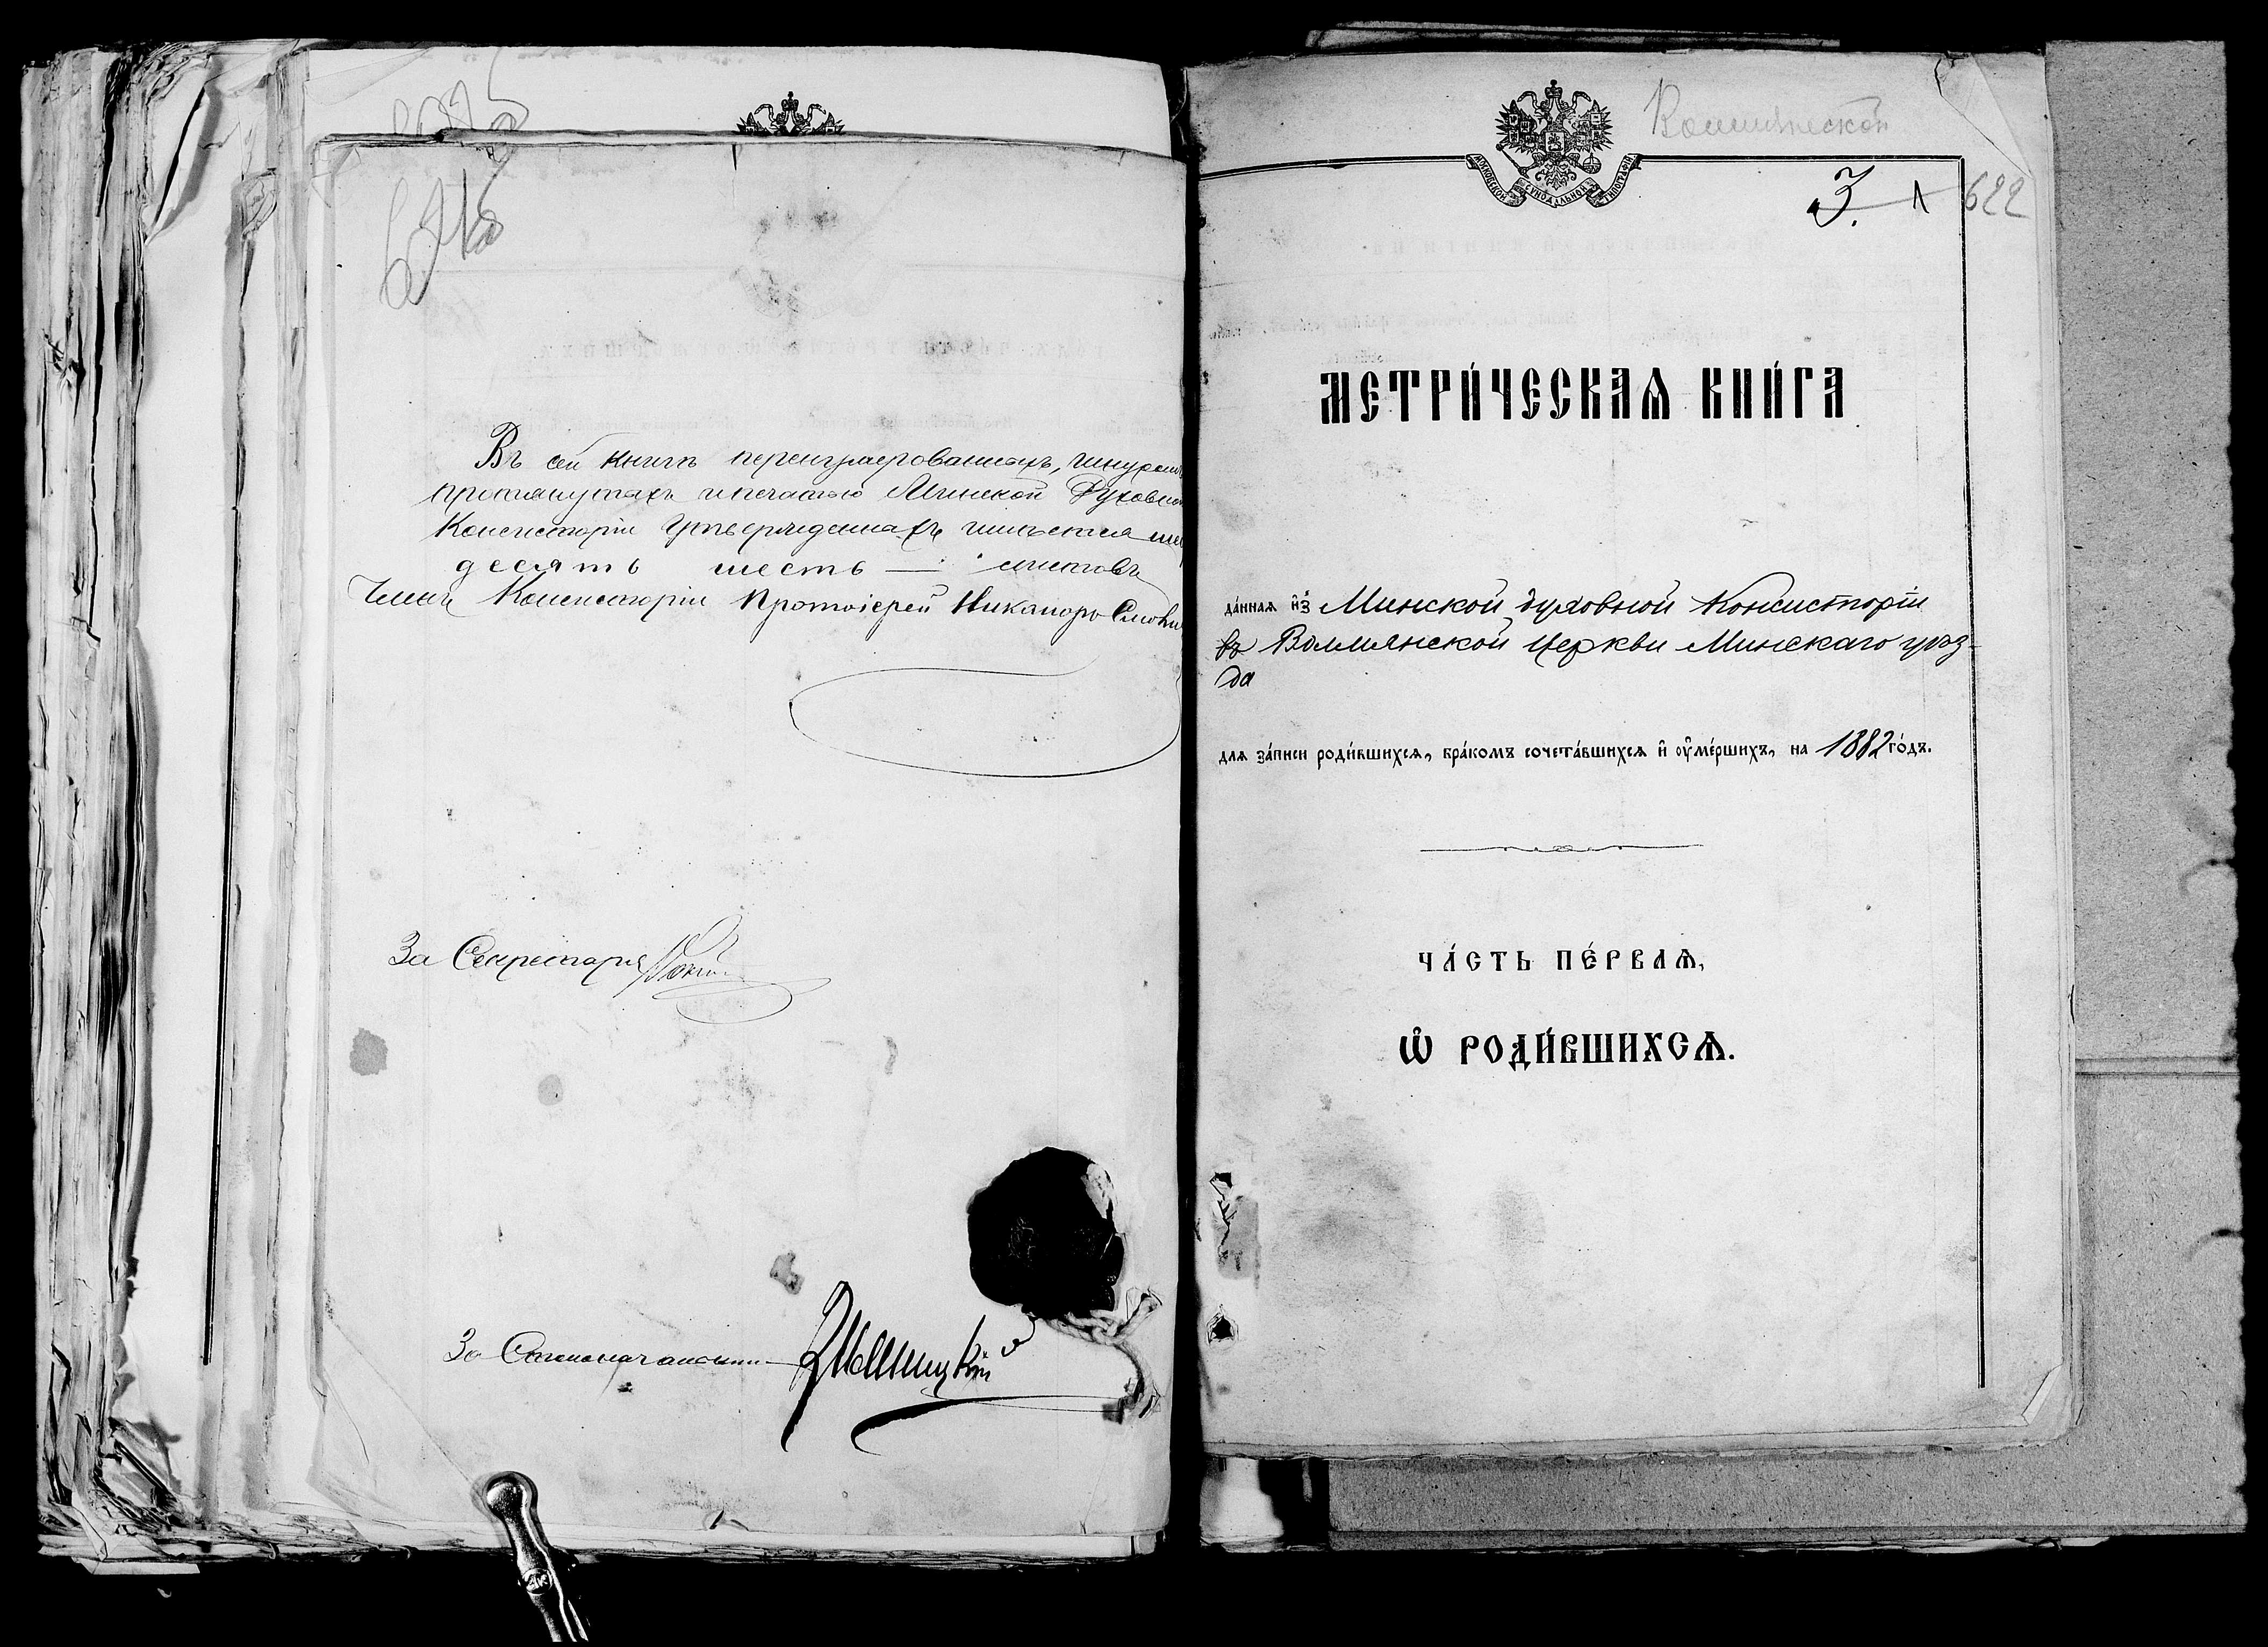 Въ сей книгѣ перенумерованныхъ, шнуром
протянутыхъ и печатью Минской Духовной
Консисторіи утвержденныхъ имѣется ше
десять шесть — листовъ
Членъ Консисторіи Протоіерей Никаноръ
За Секретаря
За Столоначальника
МОСКОВСКОЙ СѴНОДАЛЬНОЙ ТИПОГРАФІИ
3. 1 622
МЕТРИ́ЧЕСКАѦ КНИ́ГА
да́нная и҆з̾ Минской духовной Консисторіи
въ Волмянской церкви Минскаго уѣз-
да
для за́писи роди́вшихся, бра́комъ сочета́вшихся и҆ ᲂу҆ме́ршихъ, на 1882 го́дъ.
ЧА́СТЬ ПЕ́РВАѦ,
Ѽ РОДИ́ВШИХСѦ.